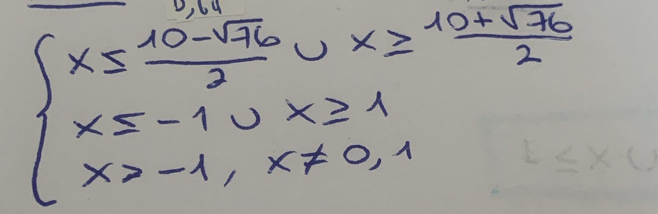 0,64
x ≤ (10-√76)/2 ∪ x ≥ (10+√76)/2
x ≤ -1 ∪ x ≥ 1
x > -1, x ≠ 0, 1